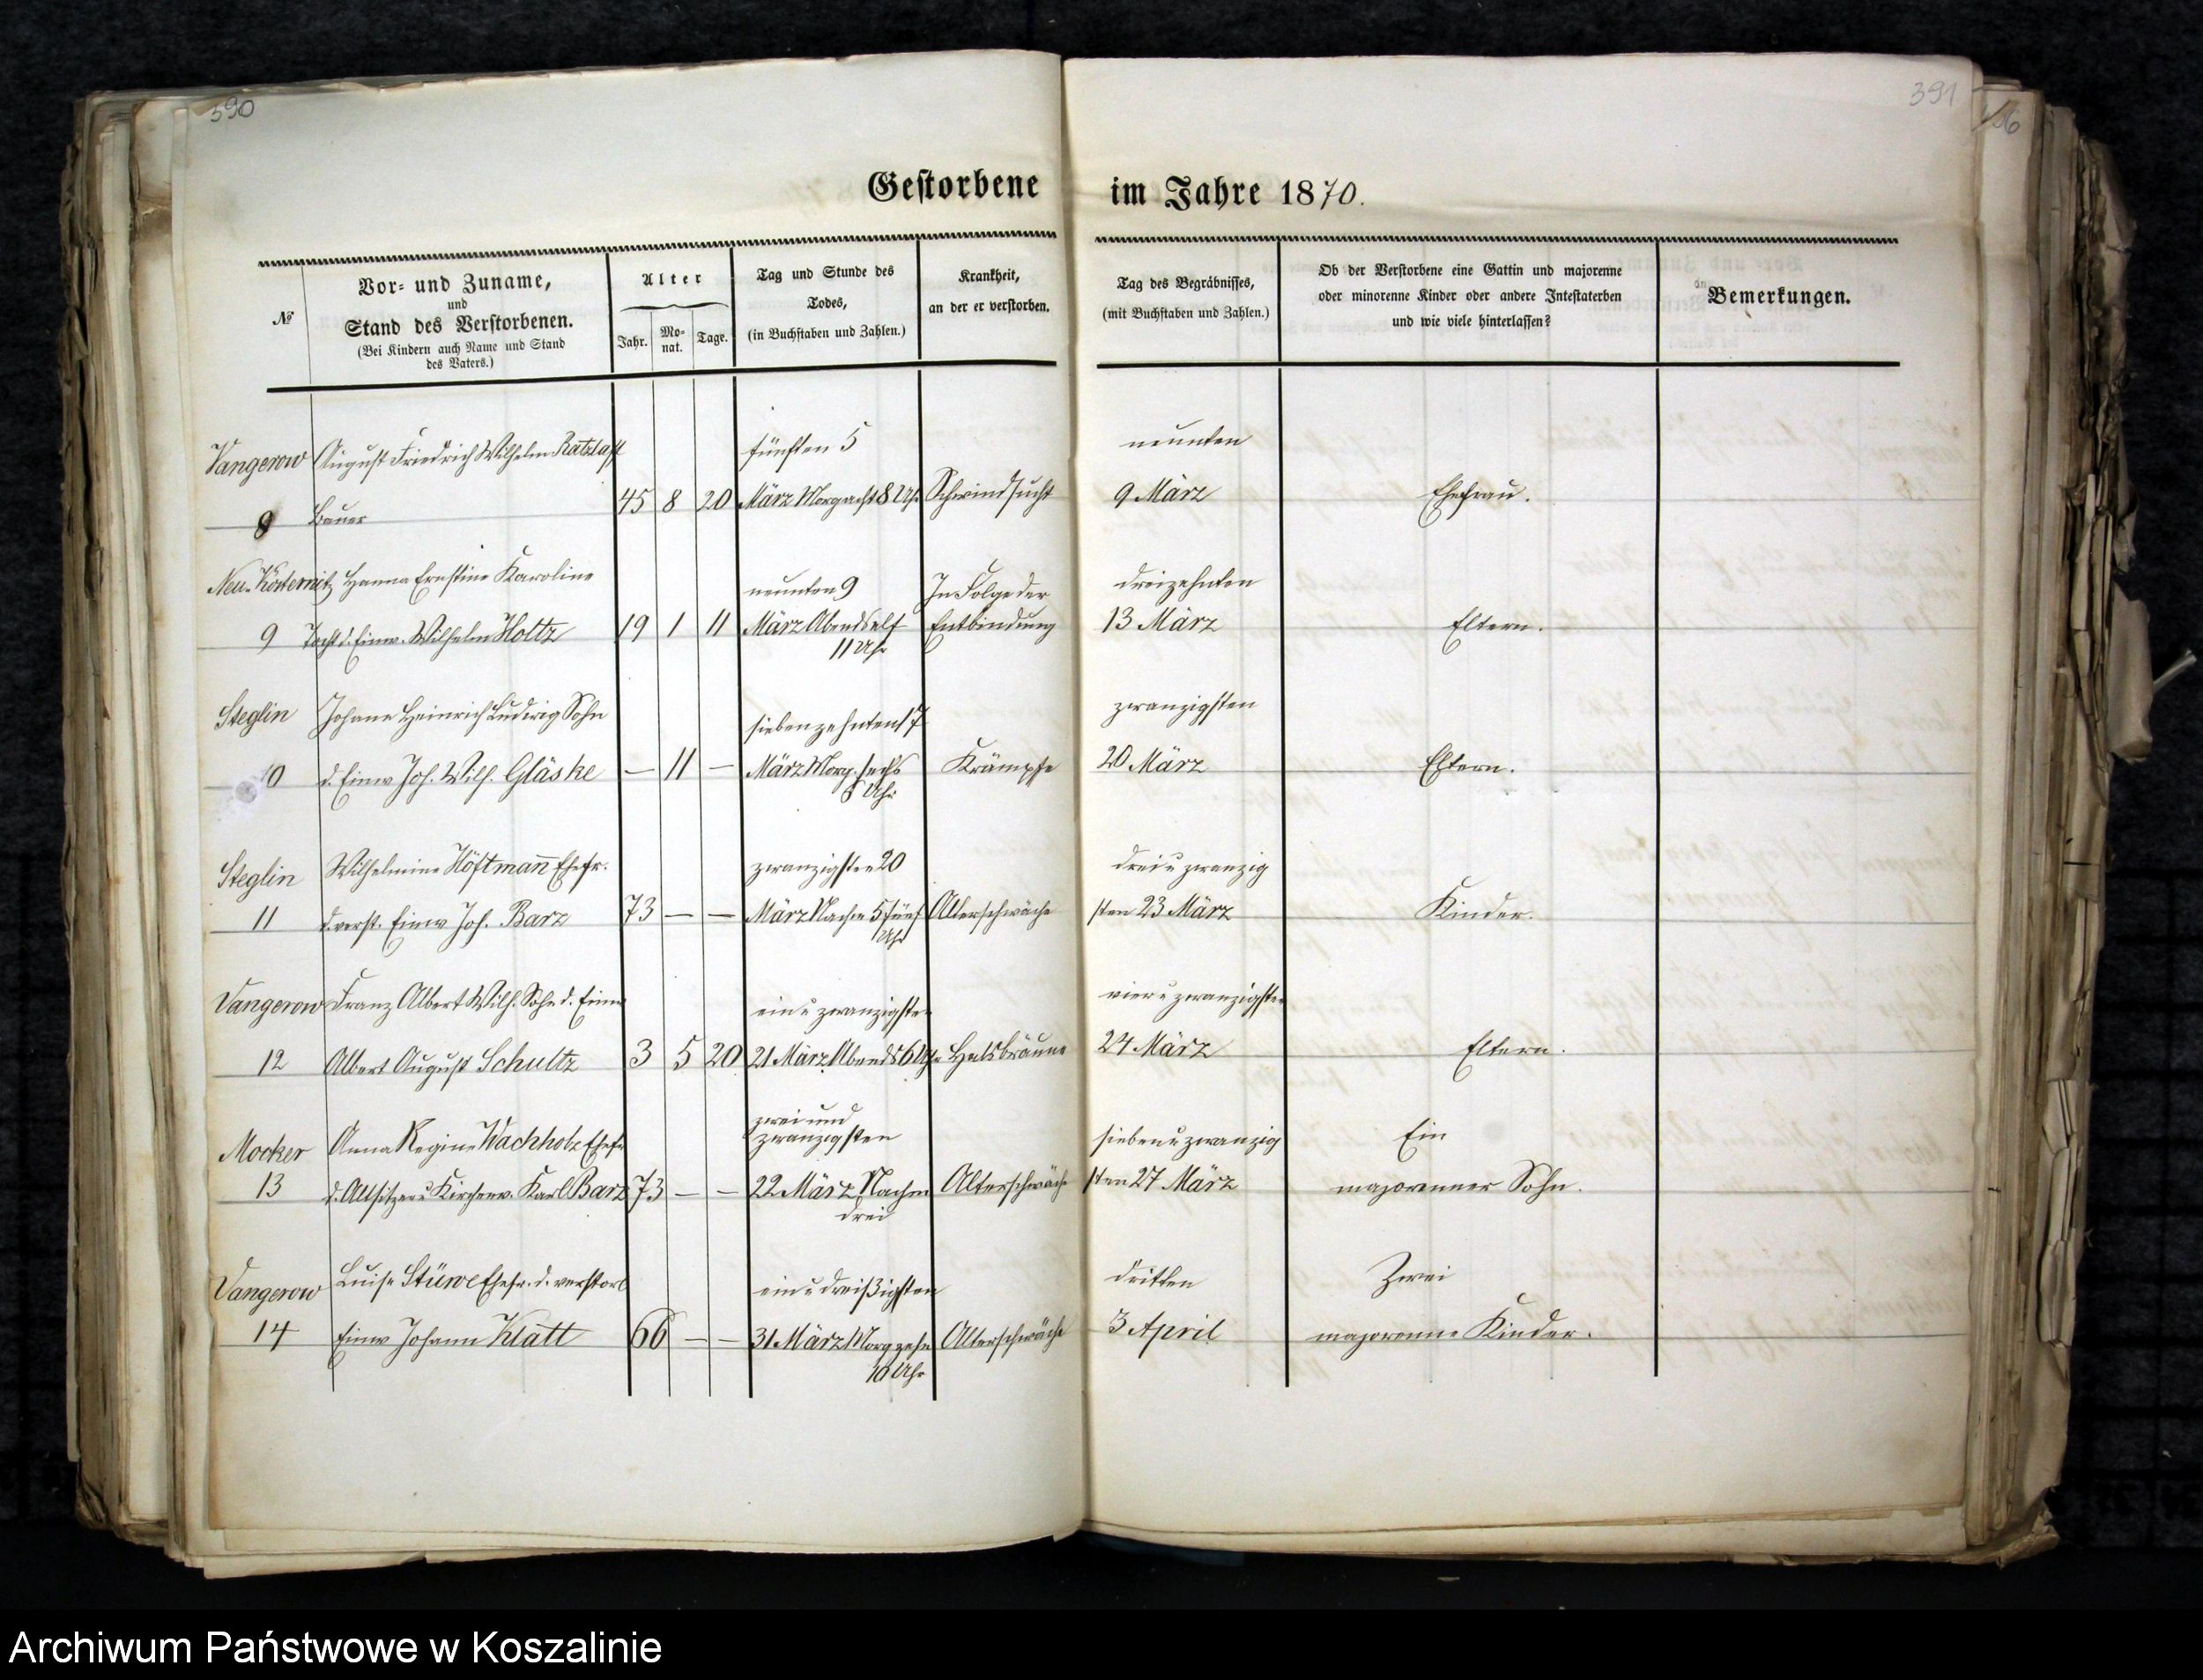 390
391
Gestorbene im Jahre 1870.
№
Vor- und Zuname,
und
Stand des Verstorbenen.
(Bei Kindern auch Name und Stand
des Vaters.)
Alter
Jahr.
Mo-
nat.
Tage.
Tag und Stunde des
Todes,
(in Buchstaben und Zahlen.)
Krankheit,
an der er verstorben.
Tag des Begräbnisses,
(mit Buchstaben und Zahlen.)
Ob der Verstorbene eine Gattin und majorenne
oder minorenne Kinder oder andere Intestaterben
und wie viele hinterlassen?
Bemerkungen.
Vangerow August Friedrich Wilhelm Ratzlaff fünften 5 neunten
8 Bauer 45 8 20 März Morg acht 8 Uhr Schwindsucht 9 März Ehefrau.
Neu-Kösternitz Hanna Ernstine Karoline neunten 9 In Folge der dreizehnten
9 Tocht d. Einw. Wilhelm Holtz 19 1 11 März Abends elf Entbindung 13 März Eltern.
11 Uhr
Steglin Johann Heinrich Ludwig Sohn siebenzehnten 17 zwanzigsten
10 d. Einw Joh. Wilh. Gläske — 11 — März Morg. sechs Krämpfe 20 März Eltern.
6 Uhr
Steglin Wilhelmine Höftmann Ehefr. zwanzigsten 20 drei u zwanzig
11 d. verst. Einw Joh. Barz 73 — — März Nachm 5 fünf Altersschwäche sten 23 März Kinder.
Uhr
Vangerow Franz Albert Wilh. Sohn d. Einw ein u zwanzigsten vier u zwanzigsten
12 Albert August Schultz 3 5 20 21 März Abends 6 Uhr Halsbräune 24 März Eltern.
zwei und
Mocker Anna Regine Wachholz Ehefr zwanzigsten sieben u zwanzig Ein
13 d. Altsitzer u Kirchenv. Karl Barz 73 — — 22 März Nachm Altersschwäche sten 27 März majorenner Sohn.
drei
Vangerow Luise Stüwe Ehefr. d. verstorb ein u dreißigsten dritten Zwei
14 Einw Johann Klatt 66 — — 31 März Morg zehn Altersschwäche 3 April majorenne Kinder.
10 Uhr
Archiwum Państwowe w Koszalinie